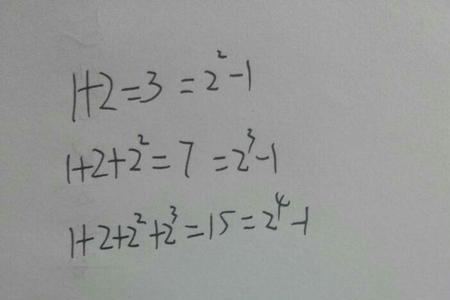 1+2=3=2²-1
1+2+2²=7=2³-1
1+2+2²+2³=15=2⁴-1